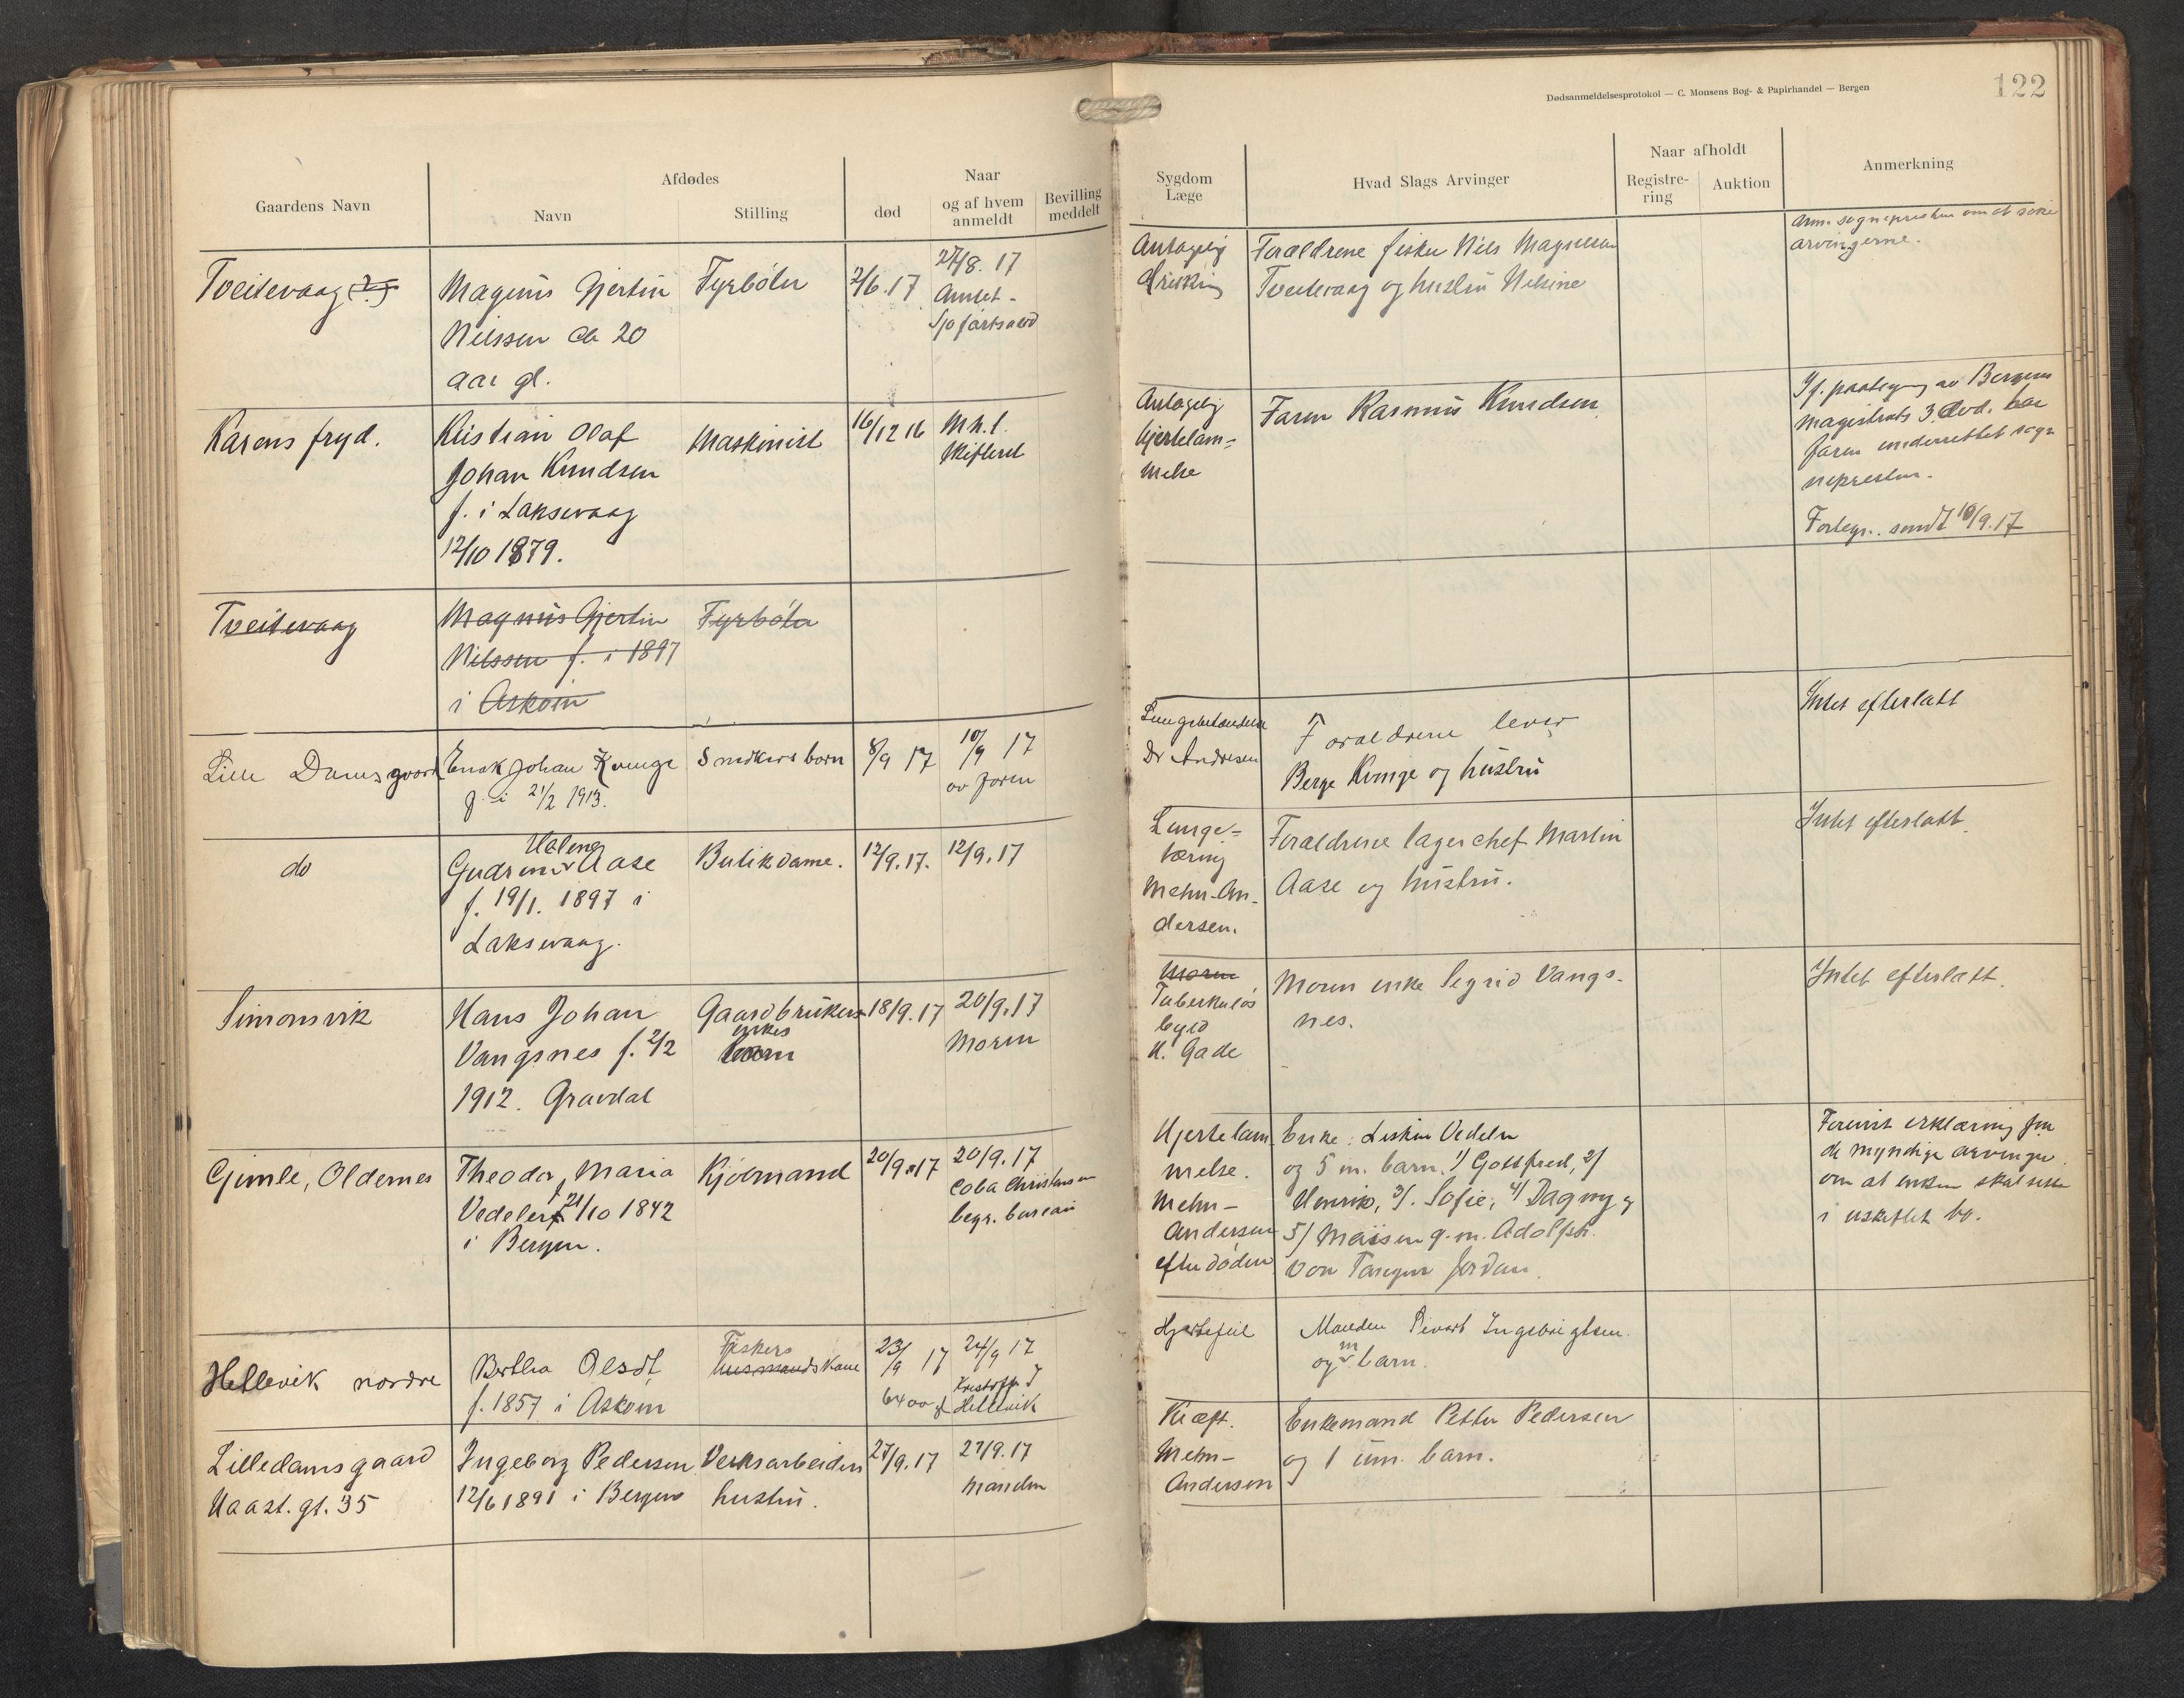 122
Dødsanmeldelsesprotokol — C. Monsens Bog- & Papirhandel — Bergen
Gaardens Navn
Afdødes
Navn
Stilling
Naar
død
og af hvem anmeldt
Bevilling meddelt
Sygdom
Læge
Hvad Slags Arvinger
Naar afholdt
Registrering
Auktion
Anmerkning
Tveitevaag (?)
Magnus Gjertin
Nilssen ca 20
aar gl.
Fyrbøter
2/6.17
27/8. 17
Amtet -
Sjøfartsavd
Antagelig
drukning
Forældrene fisker Nils Magnussen
Tveitevaag og hustru Nilsine
Anm. sognepresten om at søke
arvingerne.
Karens fryd.
Kristian Olaf
Johan Knudsen
f. i Laksevaag
12/10 1879.
Maskinist
16/12 16
M.h.t.
skifteret
Antagelig
hjertelam-
melse
Faren Rasmus Knudsen
If. paategn. av Bergens
magistrats 3. avd. har
faren underrettet sogn
nepresten.
Fortegn. sendt 10/9.17
Tveitevaag
Magnus Gjertin
Nilssen f. i 1897
i Askøin
Fyrbøter
Lille Damsgaard
Enok Johan Kvinge
f. i 21/2 1913.
Snedkers barn
8/9 17
10/9 17
av faren
Lungebetændelse
Dr Andresen
Forældrene lever
Berge Kvinge og hustru
Intet efterlatt
do
Helene
Gudrun Aase
f. 19/1. 1897 i
Laksevaag.
Butikdame.
12/9.17.
12/9.17
Lunge-
tæring
Mehn-An-
dersen.
Forældrene lagerchef Martin
Aase og hustru.
Intet efterlatt.
Simonsvik
Hans Johan
Vangsnes f. 2/2
1912. Gravdal
Gaardbrukers
enkes
barn
18/9.17
20/9.17
Moren
Moren
Tuberkuløs
F. G. Gade
Moren enke Sigrid Vangs-
nes.
Intet efterlatt.
Gimle, Oldernes
Theodor Maria
Vedeler f. 21/10 1842
i Bergen.
Kjøbmand
20/9.17
20/9.17
Coba Christensen
begr. bureau
Hjertelam
melse.
Mehn-
Andersen
efter døden
Enke: Liskin Vedeler
og 5 m. barn. 1/ Gottfred, 2/
Henrik, 3/. Sofie, 4/ Dagny og
5/ Maisen g.m. Adolph
von Tangen Jordan.
Forevist erklæring fra
de myndige arvinger
om at enken skal sitte
i uskiftet bo.
Hellevik nordre
Berthe Olsdt.
f. 1857 i Askøin
Fiskers
husmandskone
23/9 17
24/9 17
Kristoffer J
Hellevik
Hjertefeil
Manden Sivert Ingebrigtsen.
og m barn.
Lilledamsgaard
Haast. gt. 35
Ingeborg Pedersen
12/6 1891 i Bergen
Verksarbeiders
hustru.
27/9.17
27/9.17
Manden
Kræft.
Mehn-
Andersen
Enkemand Petter Pedersen
og 1 um. barn.